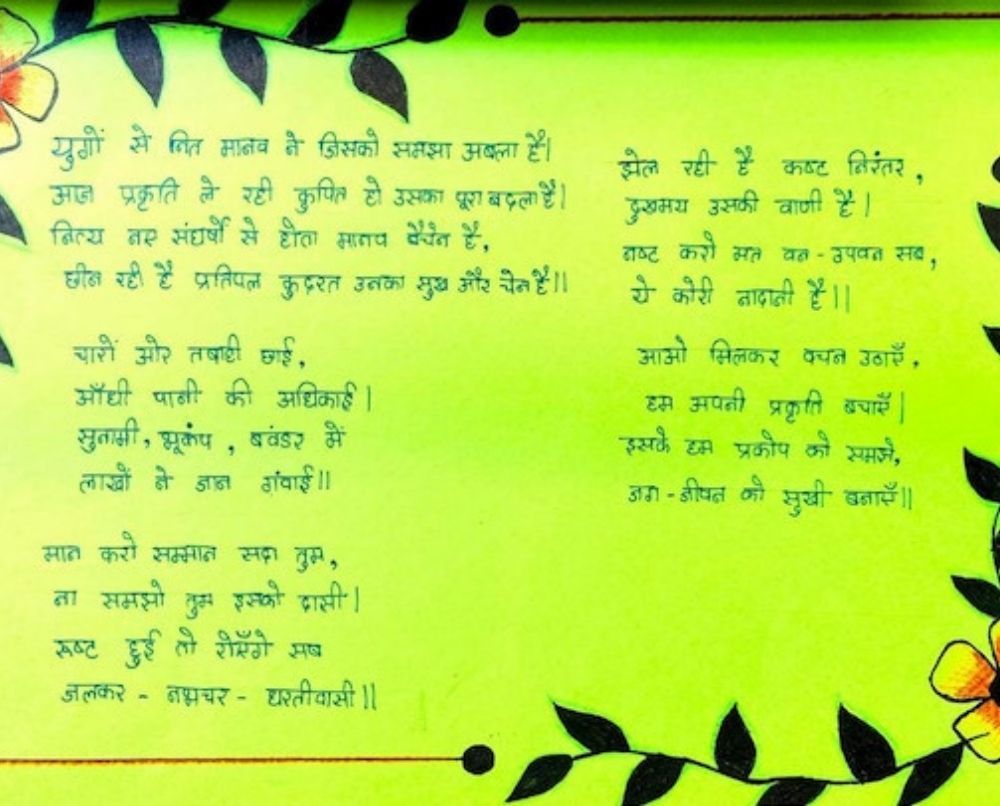 युगों से नित मानव ने जिसको समझा अबला है।
आज प्रकृति ले रही कुपित हो उसका पूरा बदला है।
नित्य नए संघर्षो से होता मानव बैचेन है,
छीन रही है प्रतिपल कुदरत उनका सुख और चेन है॥
चारों ओर तबाही छाई,
आँधी पानी की अधिकाई।
सुनामी, भूकंप, बवंडर में
लाखों ने जान गंवाई॥
मान करो सम्मान सदा तुम,
ना समझो तुम इसको दासी।
रूष्ट हुई तो रोएँगे सब
जलकर - नभचर - धरतीवासी॥
झेल रही है कष्ट निरंतर,
दुखमय उसकी वाणी है।
नष्ट करो मत वन - उपवन सब,
ये कोरी नादानी है॥
आओ मिलकर वचन उठाएँ,
हम अपनी प्रकृति बचाएँ।
इसके हम प्रकोप को समझे,
जग - जीवन को सुखी बनाएँ॥